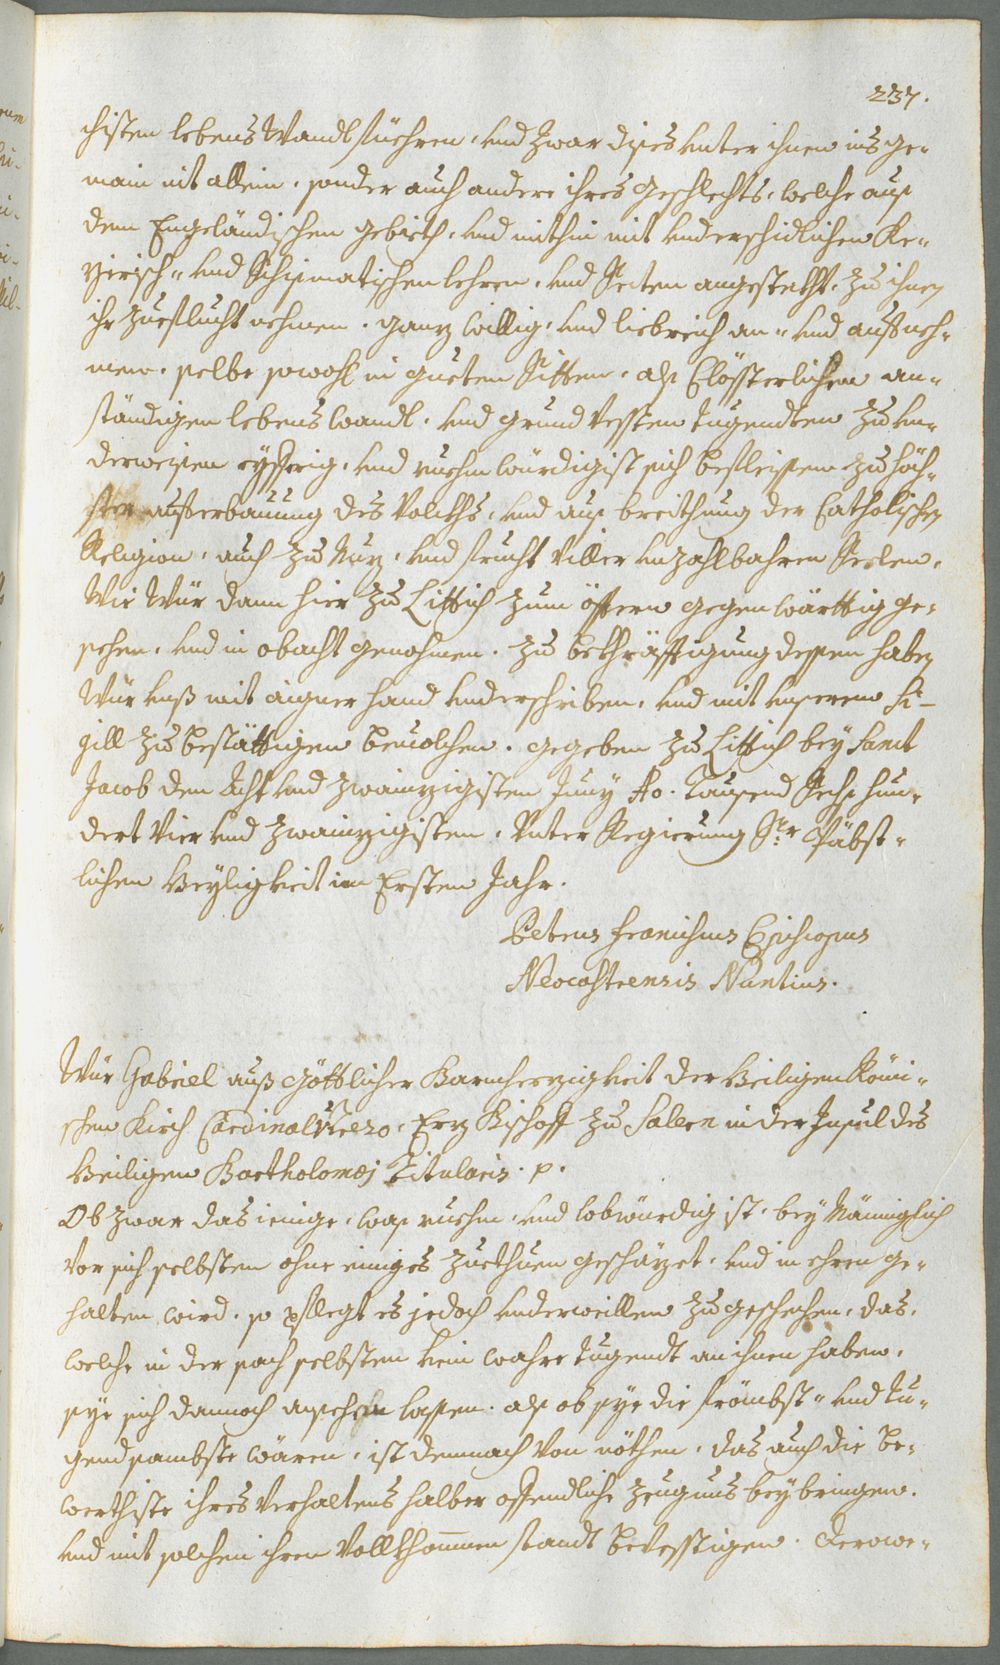 237.
chisten lebens Wandl füehren, und zwar dises unter ihnen ins ge-
main nit allein, sonder auch andere ihres geschlechts, welche auß
dem Engeländischen gebieth, und mithin mit underschidlichen Ke-
zerisch- und Schismatischen lehren, und Secten angestekht, zu ihnen
ihr zueflucht nehmen, ganz willig, und liebreich an- und aufneh-
men, selbe sowohl in gueten Sitten, als Clösterlichen an-
ständigen lebens wandl, und grund vessten tugendten zu un-
derweisen eyffrig, und ruehmwürdigist sich befleissen zu höch-
ster aufferbauung des Volckhs, und auß breithung der Catholischen
Religion, auch zu Nuz, und frucht viller unzahlbahren Seelen,
Wie Wür dann hier zu Littich zum öfftern gegenwärttig ge-
sehen, und in obacht genohmen. zu bekhräfftigung dessen haben
Wür unß mit aigner hand underschriben, und mit unserem Si-
gill zu bestättigen bevolchen. gegeben zu Littich bey Sanct
Jacob den Acht und zwainzigisten Juny Ao. Tausend Sechs hun-
dert vier und zwainzigisten, Unter Regierung Sr. Päbst-
lichen Heyligkeit im Ersten Jahr.
Petrus Franciscus Episcopus
Neocastrensis Nuntius.
Wür Gabriel auß göttlicher Barmherzigkeit der Heiligen Römi-
schen Kirch Cardinal Erz Bischoff zu Salern in der Insul des
Heiligen Bartholomæj Titularis. p.
Ob zwar das ienige, was ruehm, und lobwürdig ist, bey Männiglich
vor sich selbsten ohne einiges zuethuen geschäzet, und in ehren ge-
halten wird, so pflegt es jedoch underweillen zu geschehen, das,
welche in der sach selbsten kein wahre tugendt an ihnen haben,
sye sich dannoch ansehen lassen, als ob sye die frömbst- und tu-
gendsambste wären, ist demnach von nöthen, das auch die be-
werthiste ihres verhaltens halber offendliche zeugnus beybringen,
und mit solchen ihren vollkhommen standt bevesstigen. Derowe-